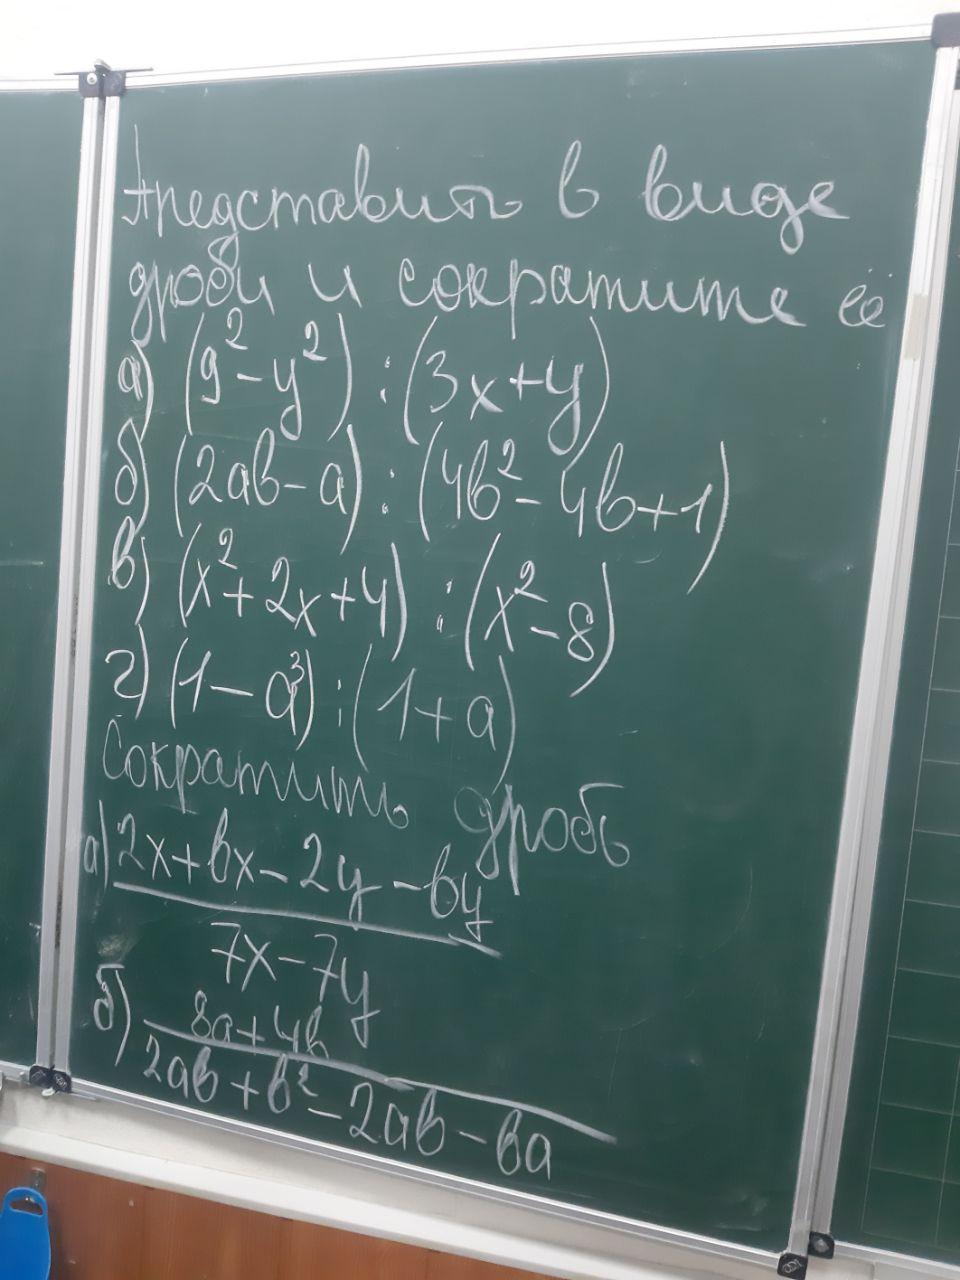 Представить в виде
дроби и сократите её
а) (9² - y²) : (3x + y)
б) (2ab - a) : (4b² - 4b + 1)
в) (x² + 2x + 4) : (x² - 8)
г) (1 - a³) : (1 + a)
Сократить дробь
а) 2x + bx - 2y - by
7x - 7y
б) 8a + 4b
2ab + b² - 2ab - ba